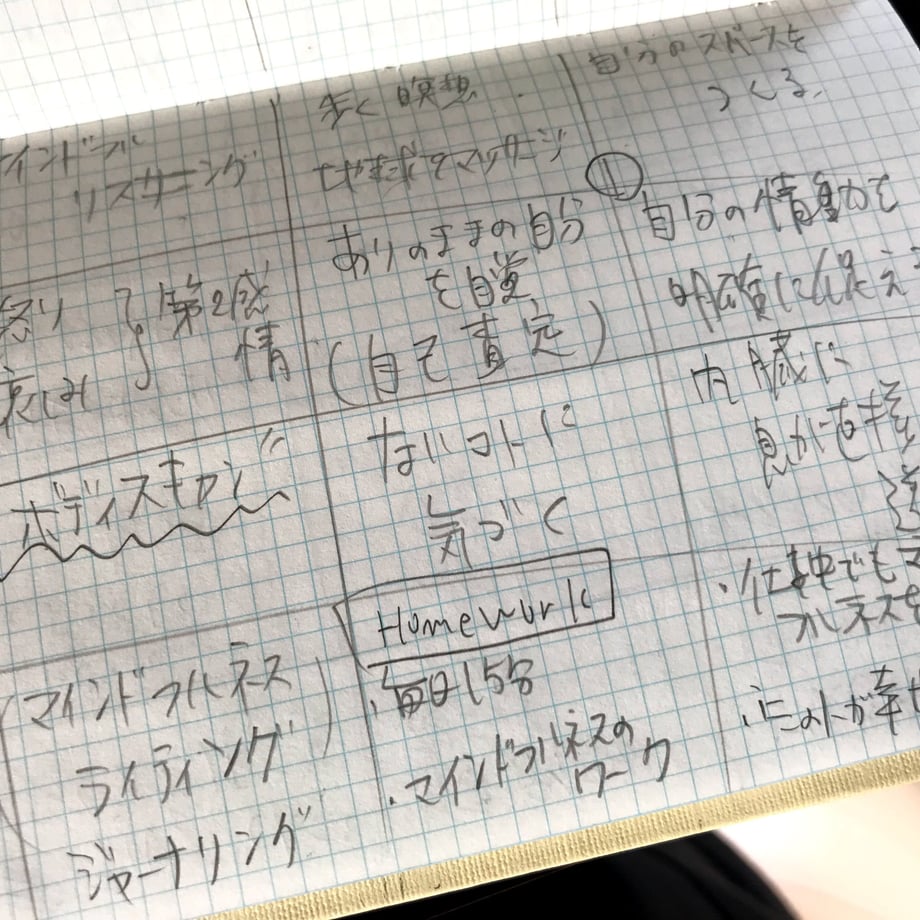 インドフル
リスニング
歩く瞑想
マッサージ
自分のスペースを
つくる。
怒り 第2感
悲しみ 情
ありのままの自分
を自覚
(自己査定)
①
自分の情動を
明確に捉え
ボディスキャン
ないコトに
気づく
内臓に
マインドフルネス
ライティング
ジャーナリング
Homework
・毎日15分
・マインドフルネスの
ワーク
・仕事中でもマ
フルネスを